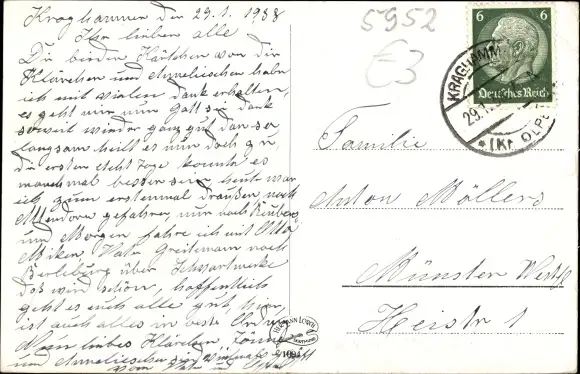 Kraghammer den 29.1.1938
Ihr lieben alle
Die beiden Kärtchen von dir
Klärchen und Annelieschen habe
ich mit vielen dank erhalten,
es geht mir nun Gott sei dank
soweit wieder ganz gut dan so
langsam heilt es nur doch
die ersten Acht Tage konnte es
manchmal besser sein heute war
ich zum erstenmal draußen nach
Attendorn gefahren, nur nach
und Morgen fahre ich mit Otto
nach
Berleburg über
das wird schön, hoffentlich
geht es euch alle gut, hier
ist auch alles in beste
liebes Klärchen,
und Annelieschen
5952
€3
6 6
Deutsches Reich
KRAGHAMM
29.1.
(Kr. OLPE
Familie
Anton Möllers
Münster Westf
Heistr 1